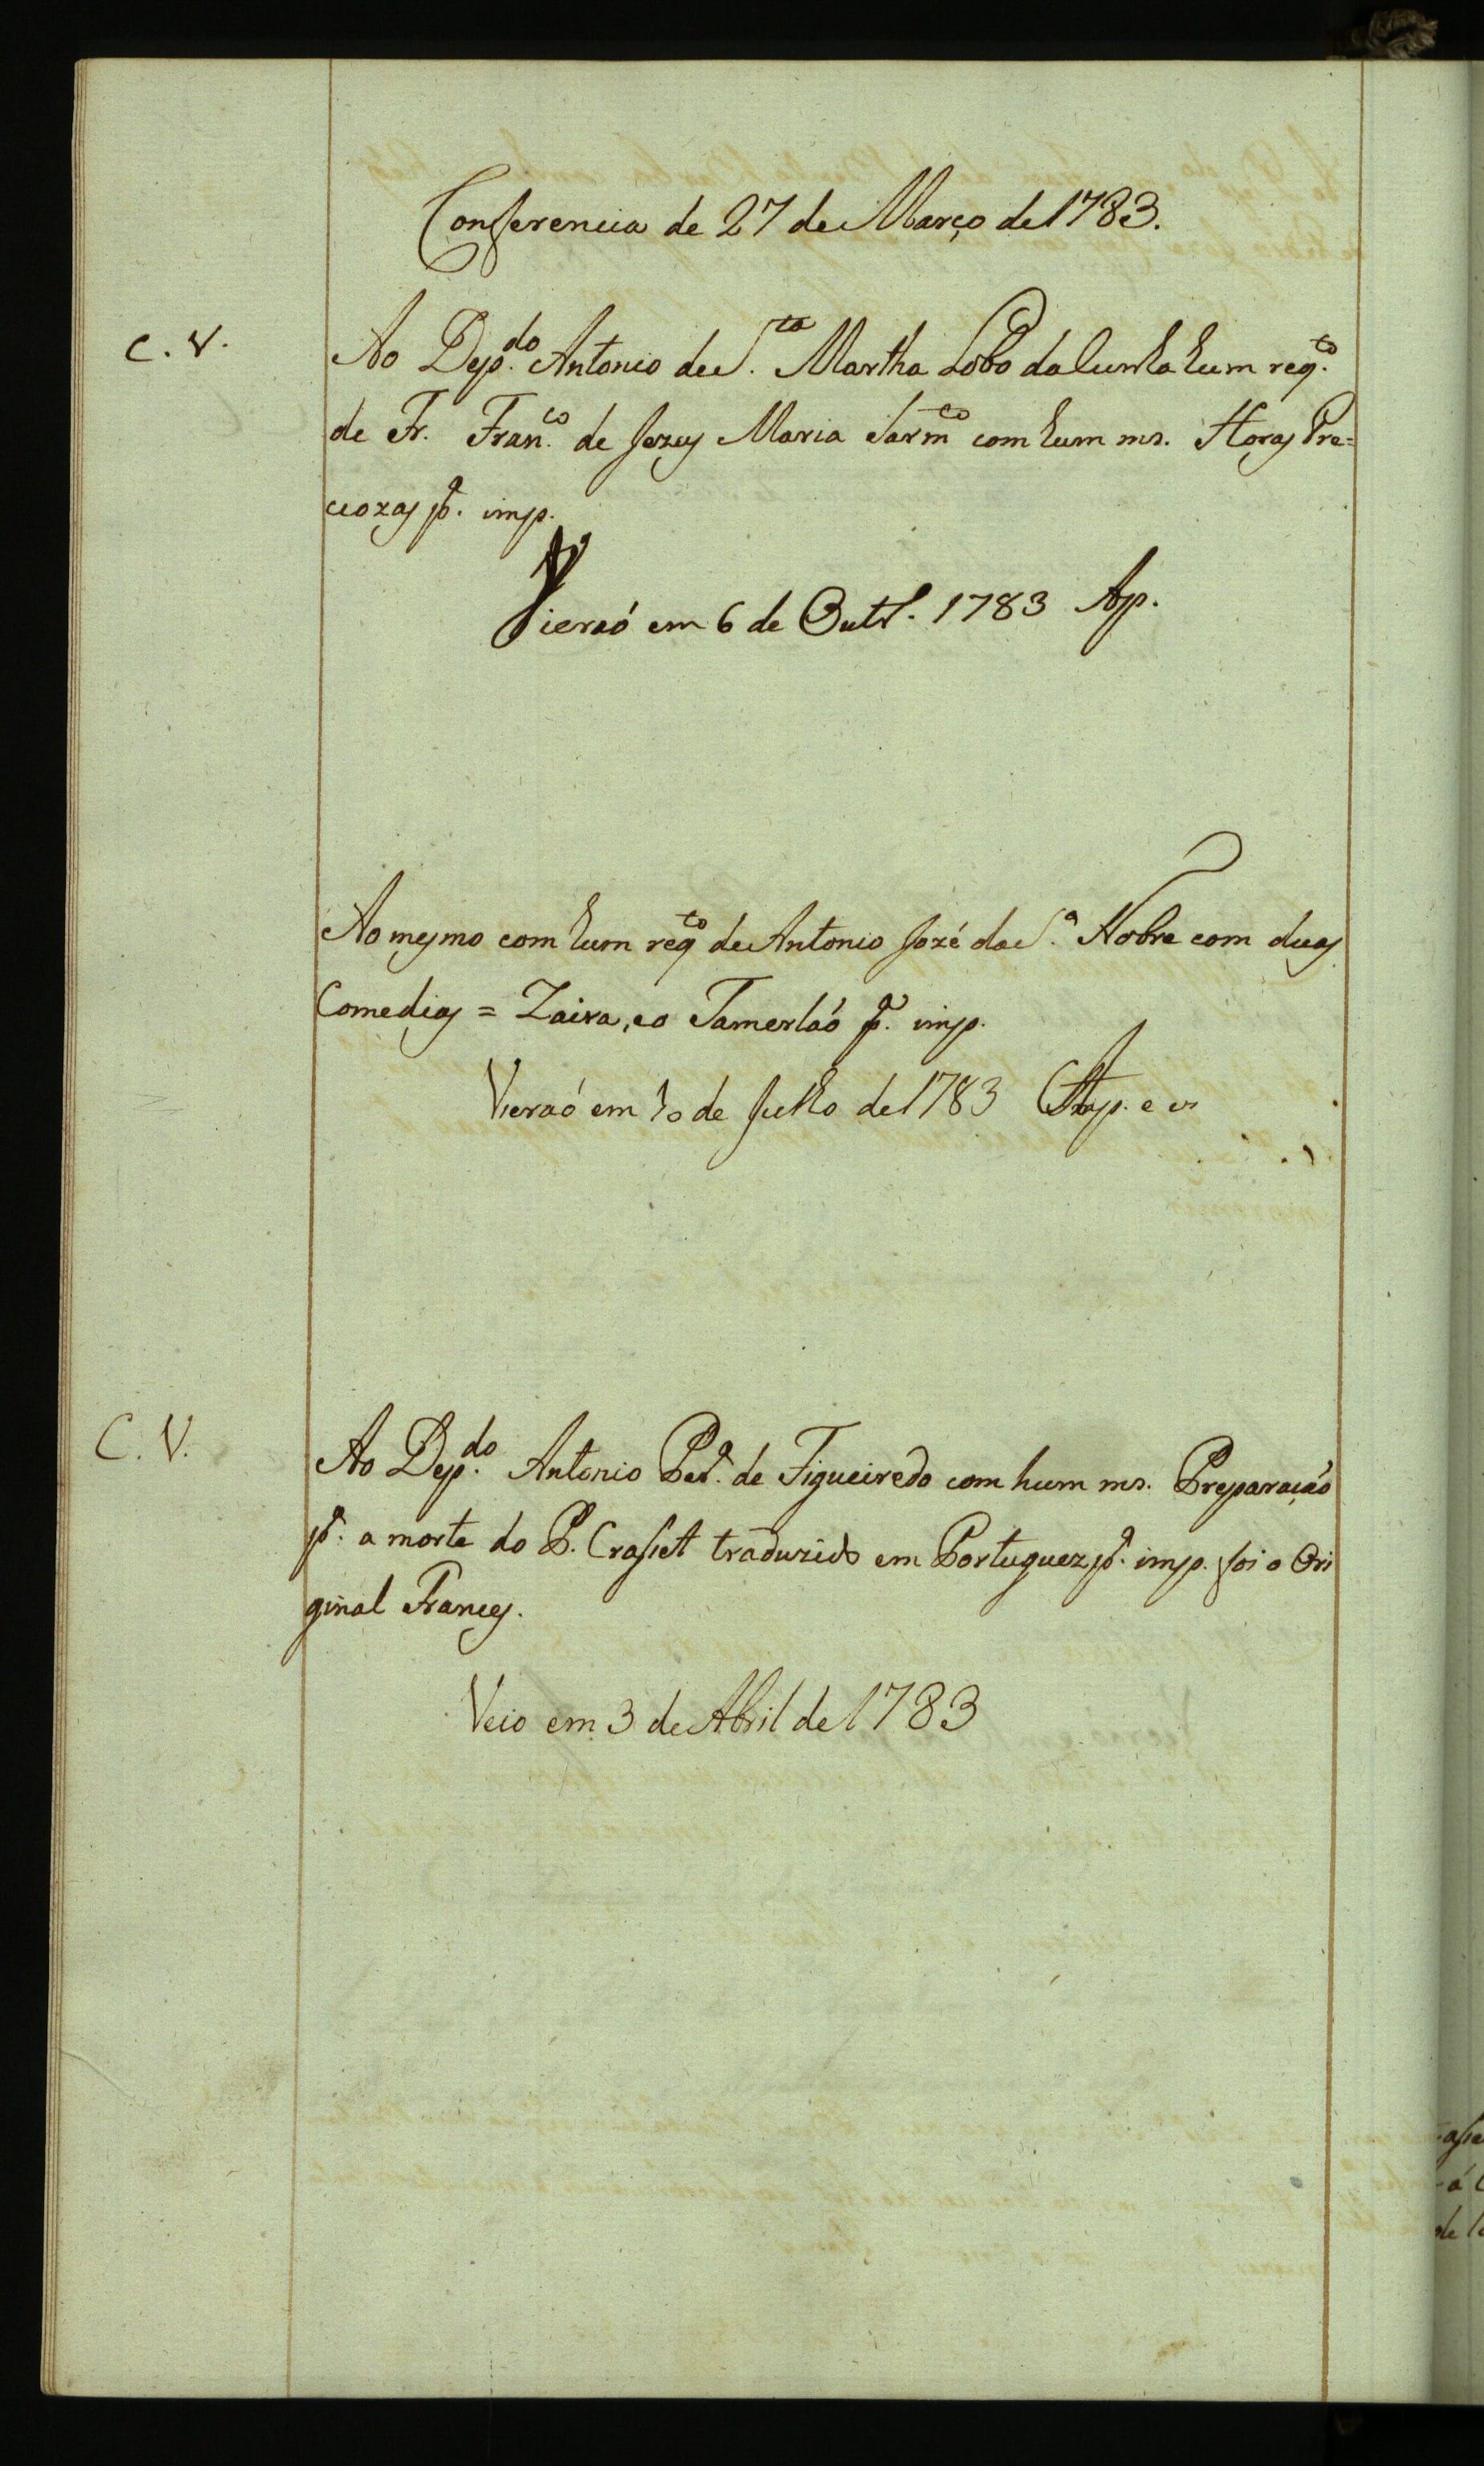 Conferencia de 27 de Março de 1783.
C. V.
Ao Dep.do Antonio de S.ta Martha Lobo da Cunha hum req.to
de Fr. Fran.co de Jezus Maria Sarm.to com hum ms. Horas Pre=
ciozas p.a imp.
Vieraó em 6 de Outr.o 1783 Ap.
Ao mesmo com hum req.to de Antonio Jozé da S.a Nobre com duas
Comedias = Zaira, e o Tamerlaó p.a imp.
Vieraó em 10 de Julho de 1783
C. V.
Ao Dep.do Antonio Per.a de Figueiredo com hum ms. Preparaçaó
p.a a morte do P. Crasset traduzido em Portuguez p.a imp. foi o Ori
ginal Frances.
Veio em 3 de Abril de 1783